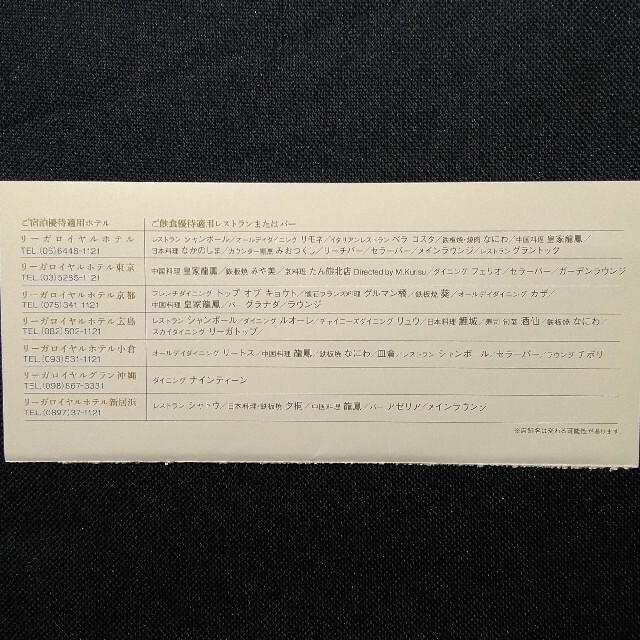 ご宿泊優待適用ホテル ご飲食優待適用レストランまたはバー
リーガロイヤルホテル レストラン シャンボール/オールデイダイニング リモネ/イタリアンレストラン ベラ コスタ/鉄板焼・焼肉 なにわ/中国料理 皇家龍鳳/
TEL.(06)6448-1121 日本料理 なかのしま/カウンター割烹 みおつくし/リーチバー/セラーバー/メインラウンジ/レストラン グラントック
リーガロイヤルホテル東京 中国料理 皇家龍鳳/鉄板焼 みや美/京料理 たん熊北店 Directed by M.Kurisu/ダイニング フェリオ/セラーバー/ガーデンラウンジ
TEL.(03)5285-1121
リーガロイヤルホテル京都 フレンチダイニング トップ オブ キョウト/懐石フランス料理 グルマン橘/鉄板焼 葵/オールデイダイニング カザ/
TEL.(075)341-1121 中国料理 皇家龍鳳/バー グラナダ/ラウンジ
リーガロイヤルホテル広島 レストラン シャンボール/ダイニング ルオーレ/チャイニーズダイニング リュウ/日本料理 鯉城/寿司・旬菜 酒仙/鉄板焼 なにわ/
TEL.(082)502-1121 スカイダイニング リーガトップ/
リーガロイヤルホテル小倉 オールデイダイニング リートス/中国料理 龍鳳/鉄板焼 なにわ/皿倉/レストラン シャンボール/セラーバー/ラウンジ チボリ
TEL.(093)531-1121
リーガロイヤルグラン沖縄 ダイニング ナインティーン
TEL.(098)867-3331
リーガロイヤルホテル新居浜 レストラン シャトウ/日本料理・鉄板焼 夕桐/中国料理 龍鳳/バー アゼリア/メインラウンジ
TEL.(0897)37-1121
※店舗名は変わる可能性があります。